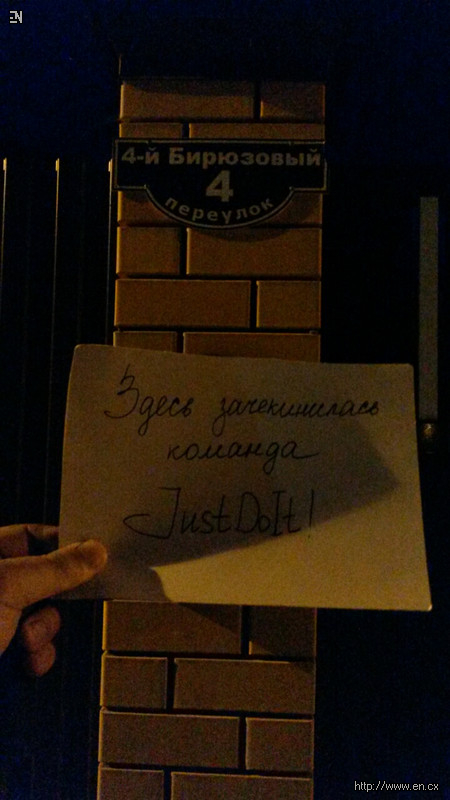 EN
4-й Бирюзовый
4
переулок
Здесь зачекинилась
команда
JustDoIt!
http://www.en.cx